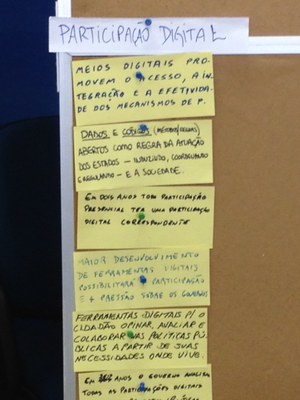 PARTICIPAÇÃO DIGITAL
MEIOS DIGITAIS PRO-
MOVEM O ACESSO, A IN-
TEGRAÇÃO E A EFETIVIDA-
DE DOS MECANISMOS DE P.
DADOS E CÓDIGOS
ABERTOS COMO REGRA DA ATUAÇÃO
DOS ESTADOS - INDUZINDO, COORDENANDO
E REGULANDO - E A SOCIEDADE.
EM DOIS ANOS TODA PARTICIPAÇÃO
PRESENCIAL TEM UMA PARTICIPAÇÃO
DIGITAL CORRESPONDENTE
MAIOR DESENVOLVIMENTO
DE FERRAMENTAS DIGITAIS
POSSIBILITARÁ + PARTICIPAÇÃO
E + PRESSÃO SOBRE OS GOVERNOS
FERRAMENTAS DIGITAIS P/ O
CIDADÃO OPINAR, AVALIAR E
COLABORAR NAS POLÍTICAS PÚ-
BLICAS A PARTIR DE SUAS
NECESSIDADES ONDE VIVE.
EM ANOS O GOVERNO ANALISA
TODAS AS PARTICIPAÇÕES DIGITAIS